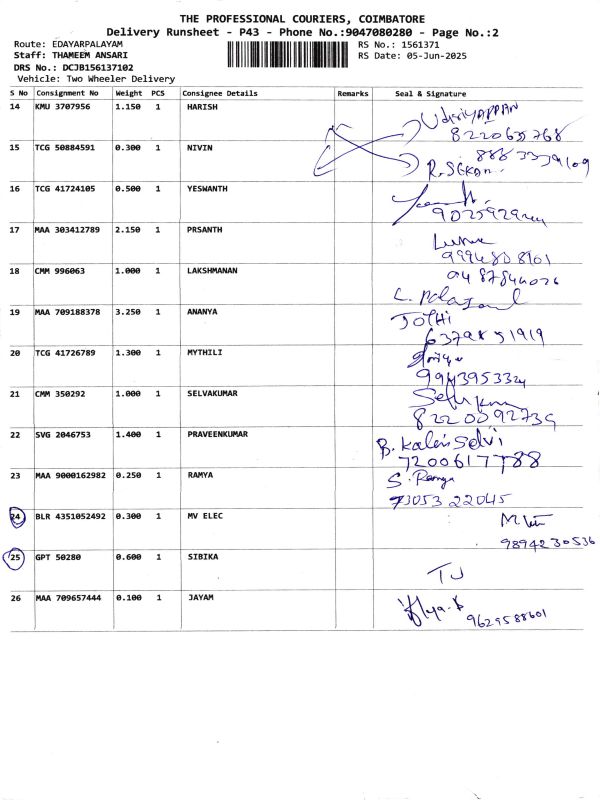 THE PROFESSIONAL COURIERS, COIMBATORE
Delivery Runsheet - P43 - Phone No.:9047080280 - Page No.:2
Route: EDAYARPALAYAM
RS No.: 1561371
Staff: THAMEEM ANSARI
RS Date: 05-Jun-2025
DRS No.: DCJB156137102
Vehicle: Two Wheeler Delivery
S No Consignment No Weight PCS Consignee Details Remarks Seal & Signature
14 KMU 3707956 1.150 1 HARISH
8220635768
15 TCG 50884591 0.300 1 NIVIN
R. SEKAR.
16 TCG 41724105 0.500 1 YESWANTH
17 MAA 303412789 2.150 1 PRSANTH
9994808101
18 CMM 996063 1.000 1 LAKSHMANAN
19 MAA 709188378 3.250 1 ANANYA
JOTHI
6379851919
20 TCG 41726789 1.300 1 MYTHILI
21 CMM 350292 1.000 1 SELVAKUMAR
8220092739
22 SVG 2046753 1.400 1 PRAVEENKUMAR
B. KalaiSelvi
7200617788
23 MAA 9000162982 0.250 1 RAMYA
S. Ramya
73053 22045
24 BLR 4351052492 0.300 1 MV ELEC
9894230536
25 GPT 50280 0.600 1 SIBIKA
TJ
26 MAA 709657444 0.100 1 JAYAM
9629588601